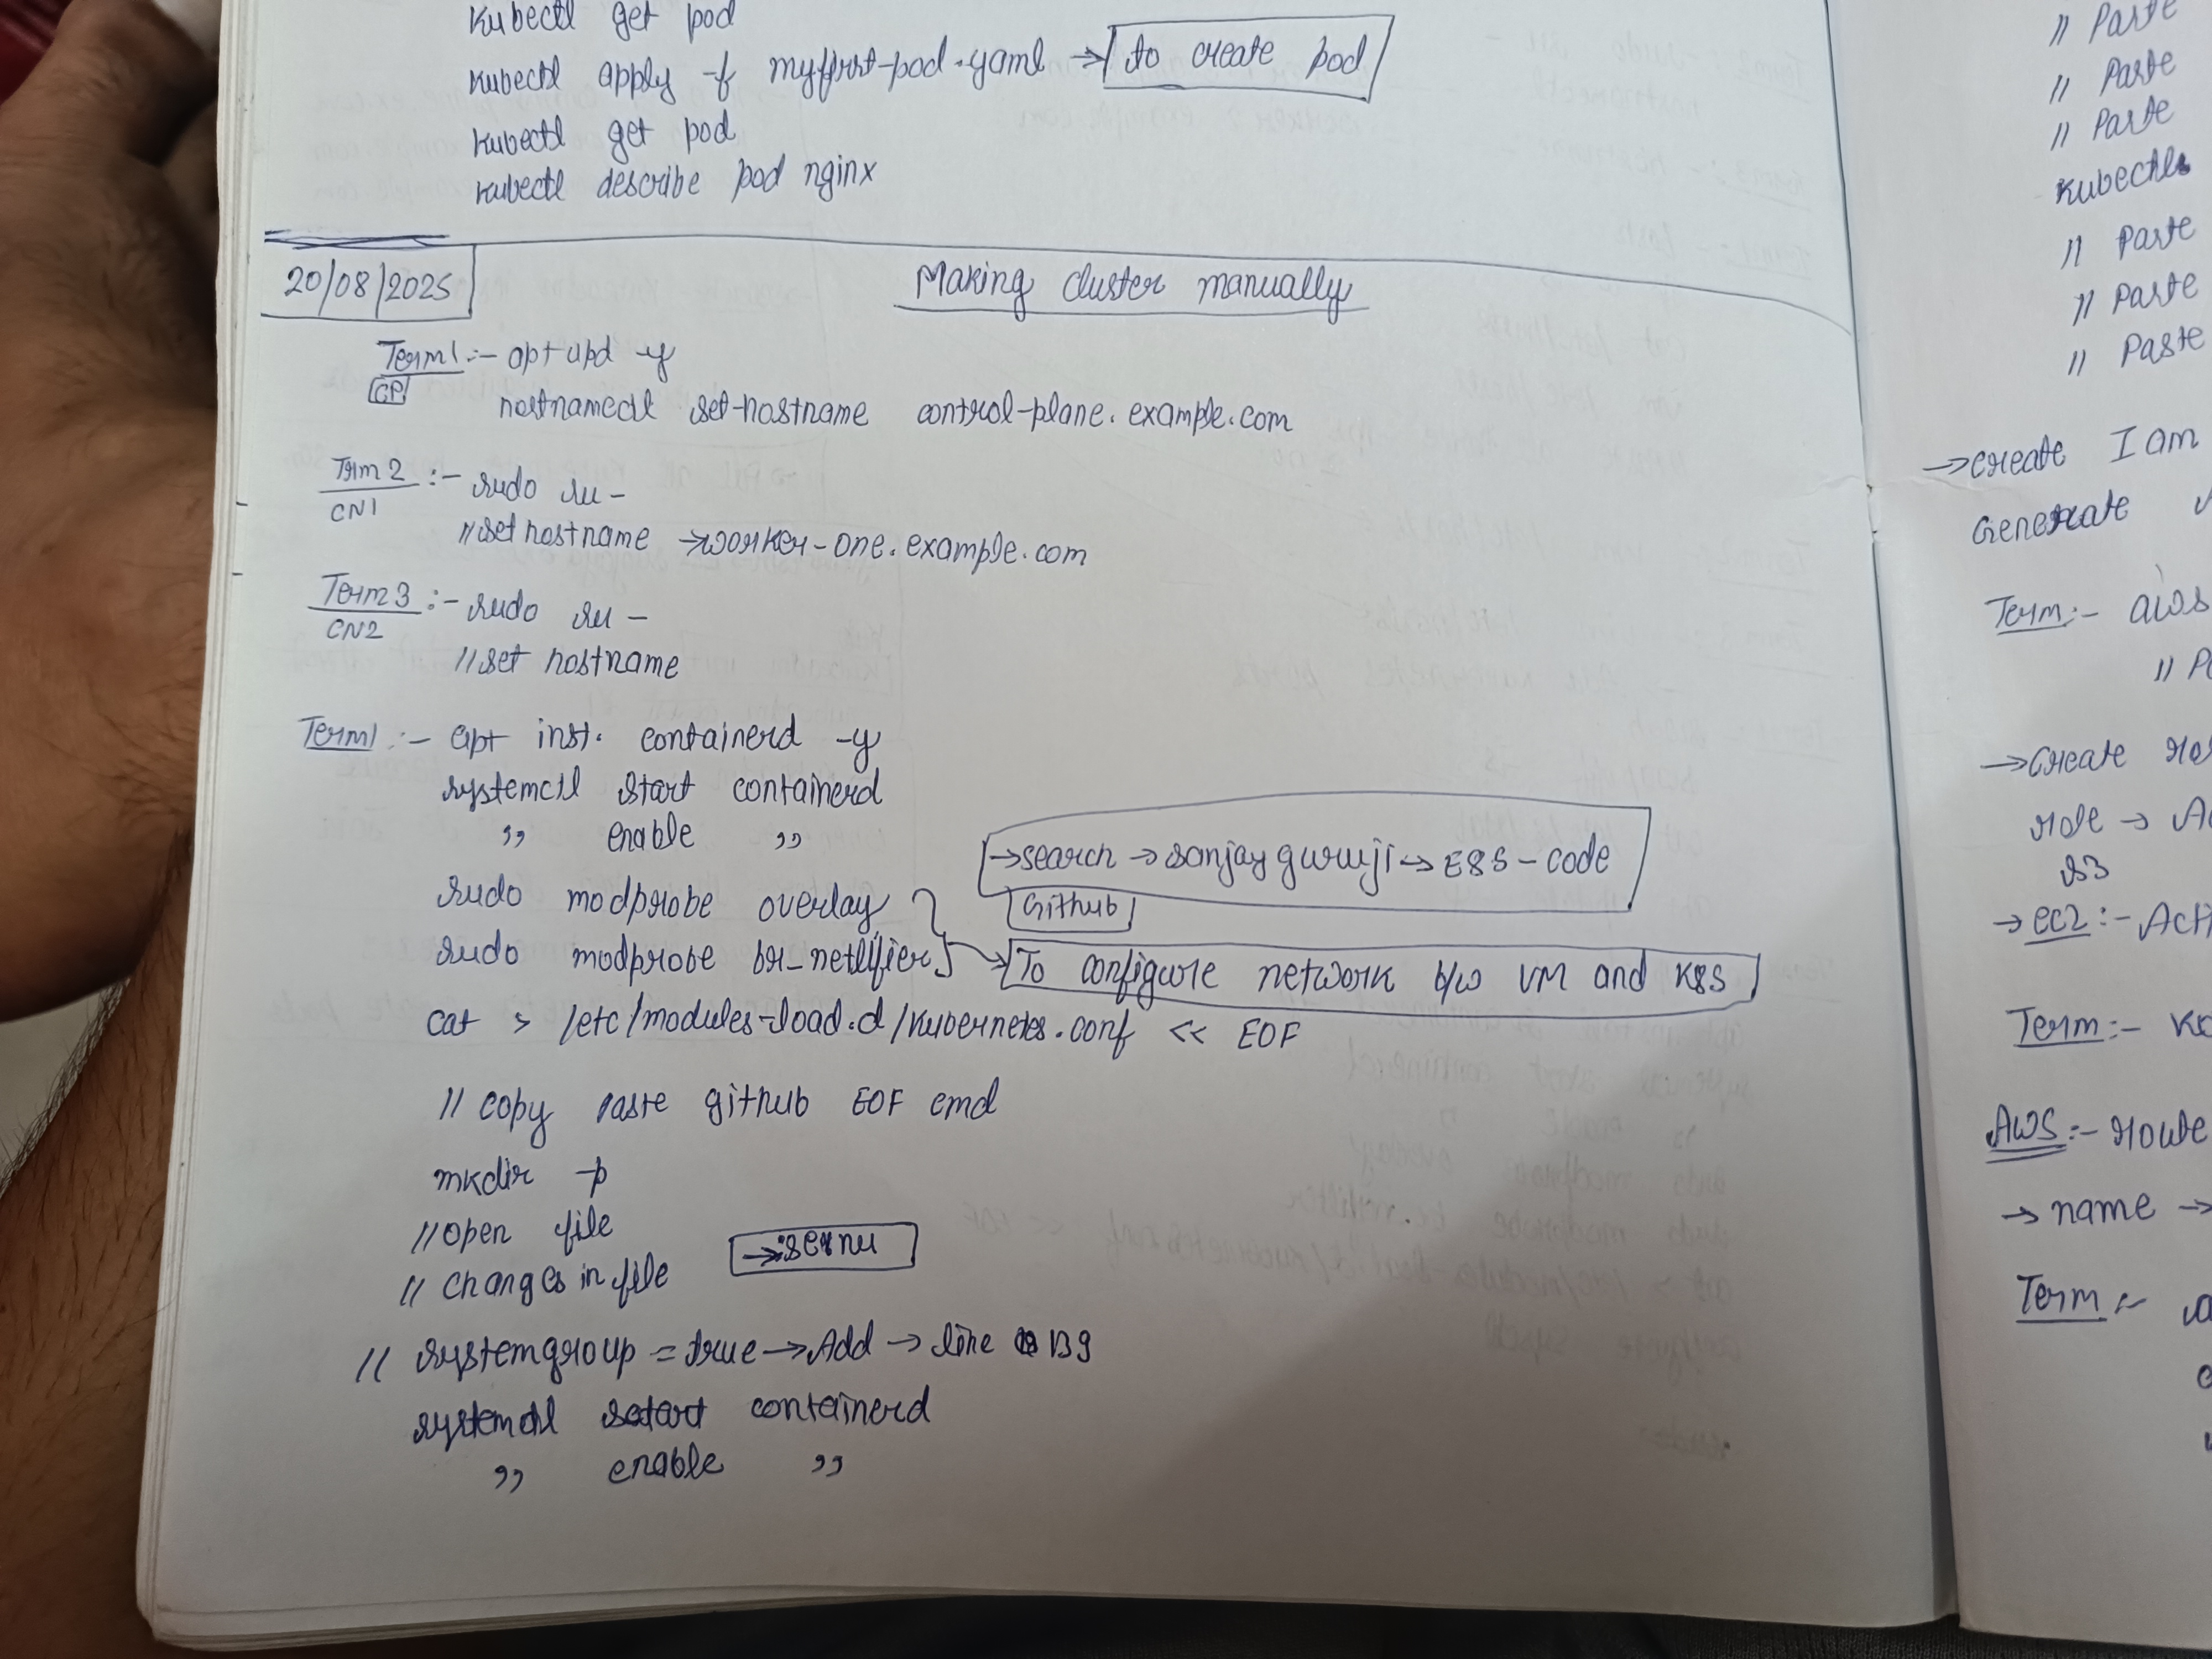 kubectl get pod
kubectl apply -f myfirst-pod.yaml → to create pod
kubectl get pod
kubectl describe pod nginx
20/08/2025
Making cluster manually
Term1 :- apt upd -y
CP
hostnamectl set-hostname control-plane.example.com
Term 2 :- sudo su -
CN1
// set hostname → worker-one.example.com
Term 3 :- sudo su -
CN2
// set hostname
Term1 :- apt inst. containerd -y
systemctl start containerd
,, enable ,,
→ search → sanjayguruji → E8S-code
Github
sudo modprobe overlay
sudo modprobe br_netlifier → To configure network b/w VM and K8S
cat > /etc/modules-load.d/kubernetes.conf << EOF
// copy paste github EOF cmd
mkdir -p
// open file
// changes in file
→ :se nu
// systemgroup = true → Add → line 139
systemctl start containerd
,, enable ,,
// Paste
// Paste
// Paste
kubectl
// Paste
// Paste
// Paste
→ create I am
Generate
Term :- aws
→ Create
role → A
s3
→ ec2 :- Act
Term :-
AWS :- route
→ name →
Term :-